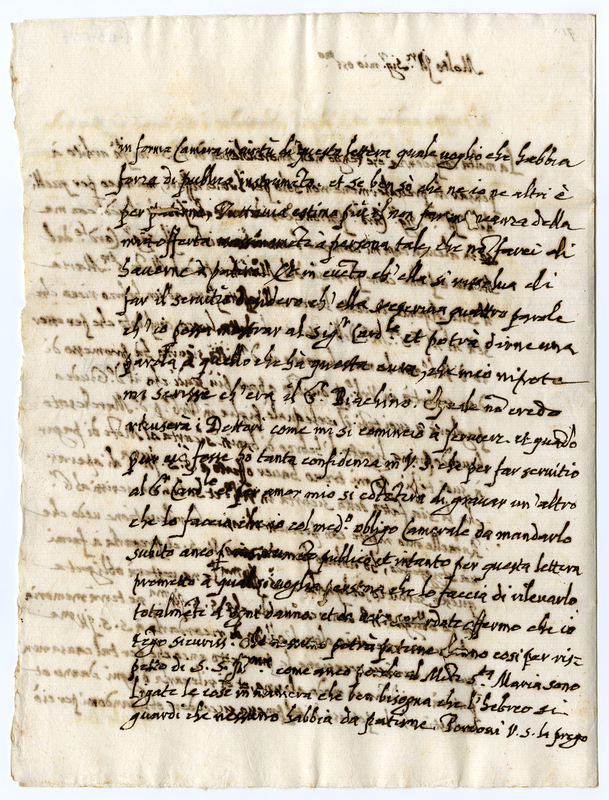 in forma Camera in virtù di questa lettera quale voglio che habbia
forza di publico instrumẽto. et se ben sò che ne io ne altri è
per Tuttavia estimo più il non far della
mia offerta à persona tale, che nõ farei di
haverne à patire. Et in evẽto ch'ella si risolva di
far il servitio desidero ch'ella rescriva quattro parole
ch'io possa mostrar al Sigr Cardle et potrà dirne una
parola à quello che hà questa cura, che mio nipote
mi scrisse ch'era il Sr Biachino. Il quale nõ credo
ricuserà i Dottori come mi si cominciò à scrivere. et quãdo
pur ciò fosse ho tanta confidenza in V. S. che per far servitio
al Sr Cardle et per amor mio si cõtẽterà di gravar un'altro
che lo faccia che io col medo obligo Camerale da mandarlo
subito anco instrumẽto publico et intanto per questa lettera
prometto à qual si voglia persona che lo faccia di rilevarlo
totalmẽte d'ogni danno. et da affermo che io
tẽgo sicuriss. che nessuno potrà patirne danno così per ris=
petto di S. S. Illma come anco perche al Mõte Sta Maria sono
ligate le cose in maniera che ben bisogna che l'hebreo si
guardi che nessuno habbia da patirne. Perdoni V. S. la prego